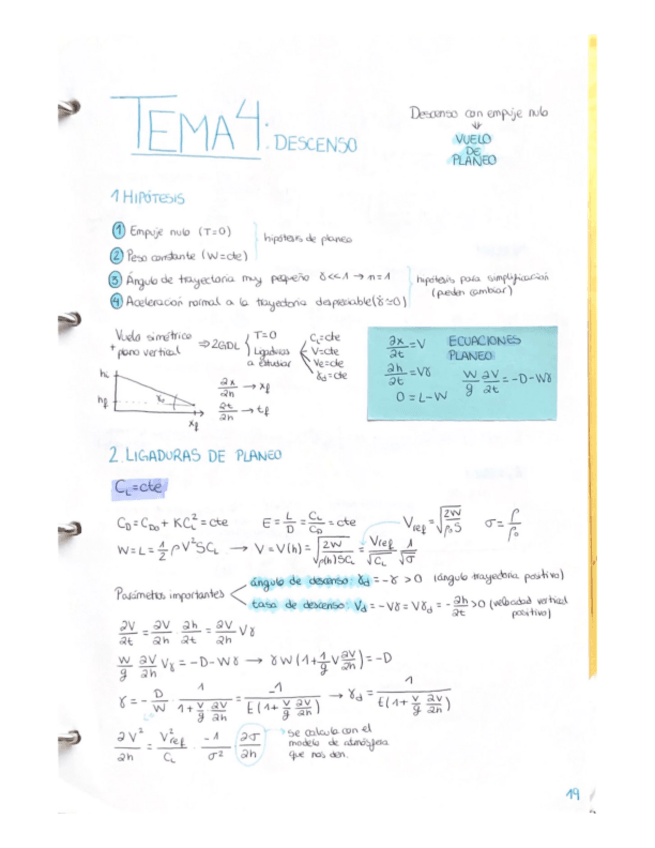 TEMA 4: DESCENSO
Descenso con empuje nulo
⇓
VUELO
DE
PLANEO
1 HIPÓTESIS
① Empuje nulo (T=0)
② Peso constante (W=cte)
hipótesis de planeo
③ Ángulo de trayectoria muy pequeño γ<<1 → n=1
④ Aceleración normal a la trayectoria despreciable (γ̇≃0)
hipótesis para simplificación
(pueden cambiar)
Vuelo simétrico
+ plano vertical ⇒ 2GDL { T=0
Ligaduras
a estudiar
CL=cte
V=cte
Ve=cte
γd=cte
∂x/∂h → xf
∂t/∂h → tf
hi
hf
xf
∂x/∂t = V
∂h/∂t = Vγ
0 = L-W
ECUACIONES
PLANEO
W/g ∂V/∂t = -D-Wγ
2. LIGADURAS DE PLANEO
CL=cte
CD = CD0 + KCL² = cte
E = L/D = CL/CD = cte
Vref = √(2W/ρ0S)
σ = ρ/ρ0
W = L = 1/2 ρV²SCL → V = V(h) = √(2W/ρ(h)SCL) = Vref/√CL 1/√σ
Parámetros importantes
ángulo de descenso: γd = -γ > 0 (ángulo trayectoria positivo)
tasa de descenso: Vd = -Vγ = Vγd = -∂h/∂t > 0 (velocidad vertical
positivo)
∂V/∂t = ∂V/∂h · ∂h/∂t = ∂V/∂h Vγ
W/g ∂V/∂h Vγ = -D-Wγ → γW(1+1/g V ∂V/∂h) = -D
γ = -D/W · 1/(1+V/g ∂V/∂h) = -1/(E(1+V/g ∂V/∂h)) → γd = 1/(E(1+V/g ∂V/∂h))
∂V²/∂h = V²ref/CL · -1/σ² ∂σ/∂h
se calcula con el
modelo de atmósfera
que nos den.
19